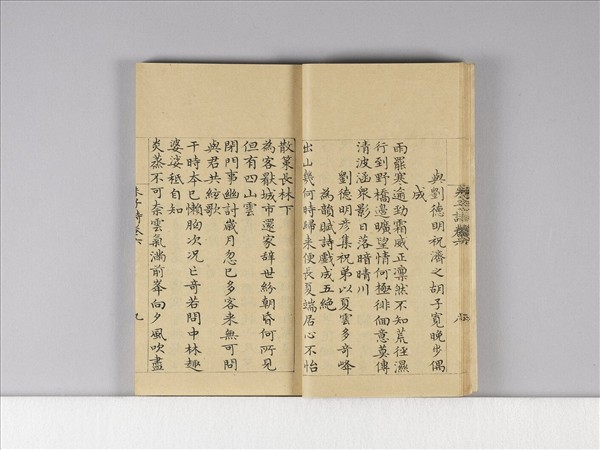 與劉德明祝濟之胡子寬晚步偶
成
雨罷寒逾勁霜威正凛然不知荒徑濕
行到野橋邊曠望情何極徘徊意莫傳
清波涵衆影日落暗晴川
劉德明彥集祝弟以夏雲多奇峰
為韻賦詩戲成五絶
出山幾何時歸来便長夏端居心不怡
散策長林下
為客猒城市還家辭世紛朝昏何所見
但有四山雲
閉門事幽討歲月忽已多客来無可問
與君共絃歌
干時夲已懶胸次况亡奇若問中林趣
婆娑秖自知
炎蒸不可奈雲氣満前峯向夕風吹盡
朱子詩卷六
九